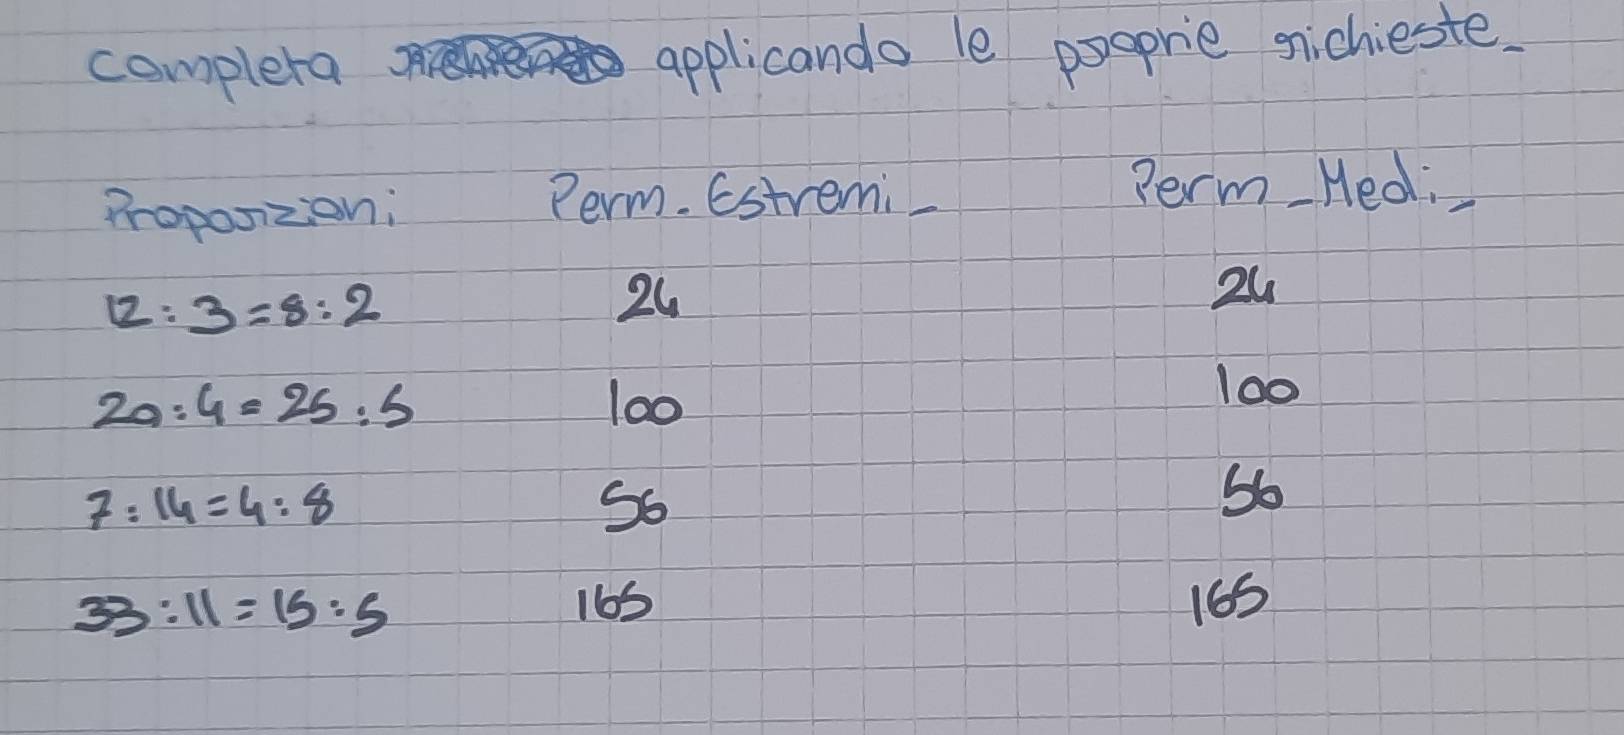 Completa applicando le proprie richieste_
Proporzioni Perm. Estremi_ Perm_Medi_
12:3=8:2 24 24
20:4=25:5 100 100
7:14=4:8 56 56
33:11=15:5 165 165